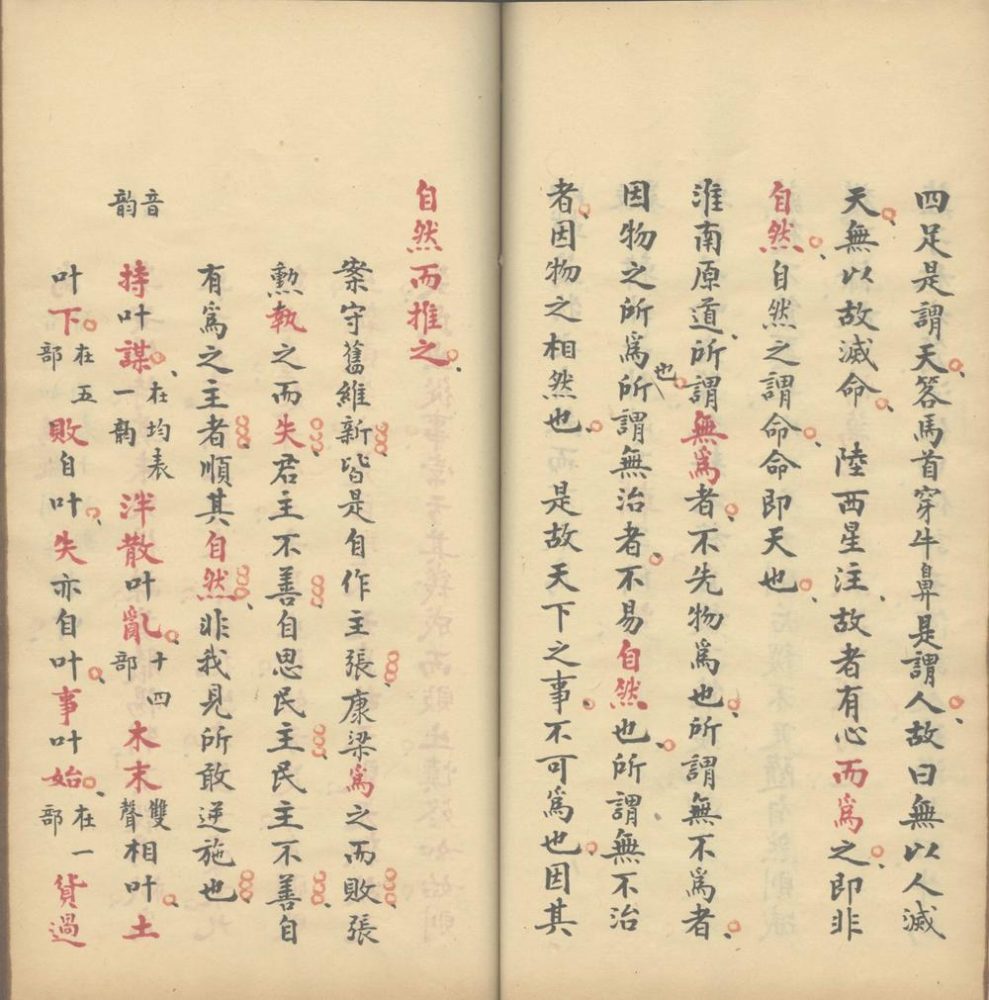 四足是謂天答馬首穿牛鼻是謂人故曰無以人滅
天無以故滅命　陸西星注故者有心而爲之即非
自然自然之謂命命即天也
淮南原道所謂無爲者不先物爲也所謂無不爲者
因物之所爲也所謂無治者不易自然也所謂無不治
者因物之相然也　是故天下之事不可爲也因其
自然而推之
案守舊維新皆是自作主張康梁爲之而敗張
勳執之而失君主不善自思民主民主不善自
有爲之主者順其自然非我見所敢逆施也
音韵　持叶謀在均表一韵　泮散叶亂十四部　木末雙聲相叶土
叶下在五部　敗自叶失亦自叶事叶始在一部　貨過